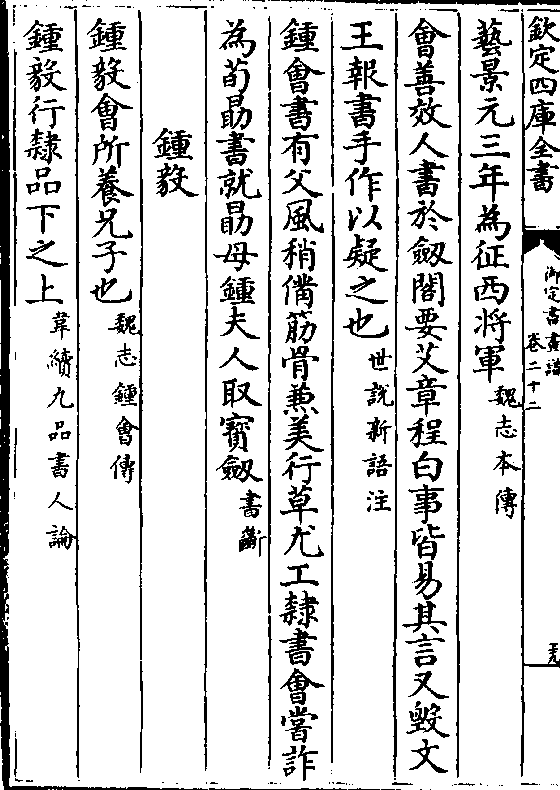 欽定四庫全書
御定書畫譜
卷二十二
藝景元三年為征西將軍魏志本傳
會善效人書於劒閣要艾章程白事皆易其言又毀文
王報書手作以疑之也世説新語注
鍾會書有父風稍備筋骨兼美行草尤工隸書會嘗詐
為荀勗書就勗母鍾夫人取寳劒書斷
鍾毅
鍾毅會所養兄子也魏志鍾會傳
鍾毅行隸品下之上韋續九品書人論